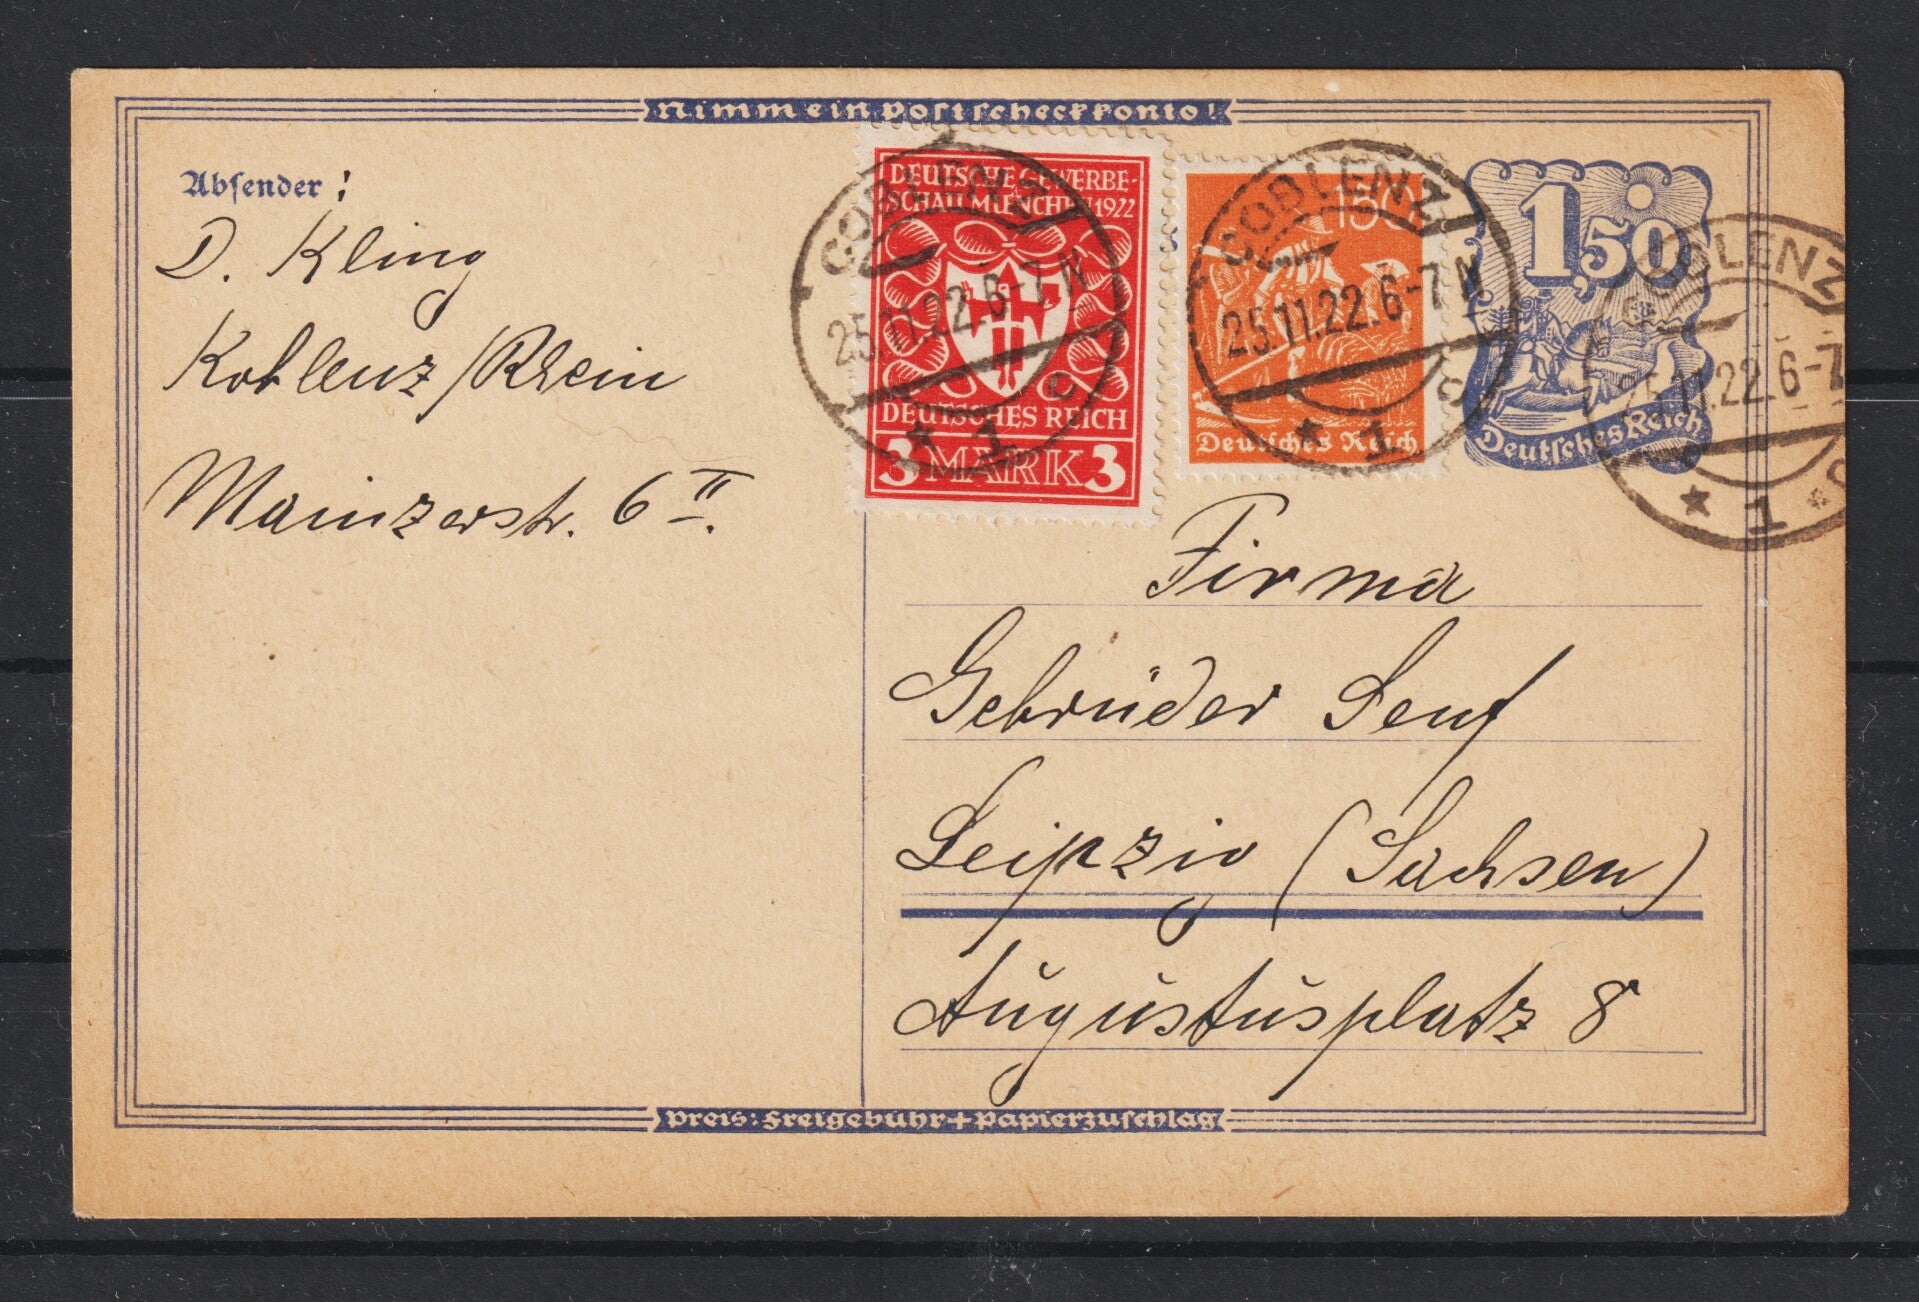 Nimm ein Postscheckkonto!
Absender:
D. Kling
Koblenz/Rhein
Mainzerstr. 6 II.
DEUTSCHE GEWERBE-
SCHAU MÜNCHEN 1922
DEUTSCHES REICH
3 MARK 3
150
Deutsches Reich
1,50
Deutsches Reich
COBLENZ
25.11.22.6-7 N
* 1 c
COBLENZ
25.11.22.6-7 N
* 1 c
COBLENZ
25.11.22.6-7
* 1 * c
Firma
Gebrüder Senf
Leipzig (Sachsen)
Augustusplatz 8
Preis: Freigebühr + Papierzuschlag